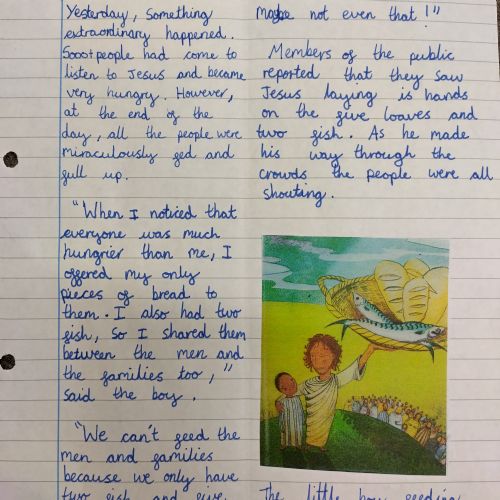 Yesterday, something
extraordinary happened.
5000+people had come to
listen to Jesus and became
very hungry. However,
at the end of the
day, all the people were
miraculously fed and
full up.
"When I noticed that
everyone was much
hungrier than me, I
offered my only
pieces of bread to
them. I also had two
fish, so I shared them
between the men and
the families too,"
said the boy.
"We can't feed the
men and families
because we only have
two fish and five
maybe not even that!"
Members of the public
reported that they saw
Jesus laying is hands
on the five loaves and
two fish. As he made
his way through the
crowds the people were all
shouting.
The little boy feeding